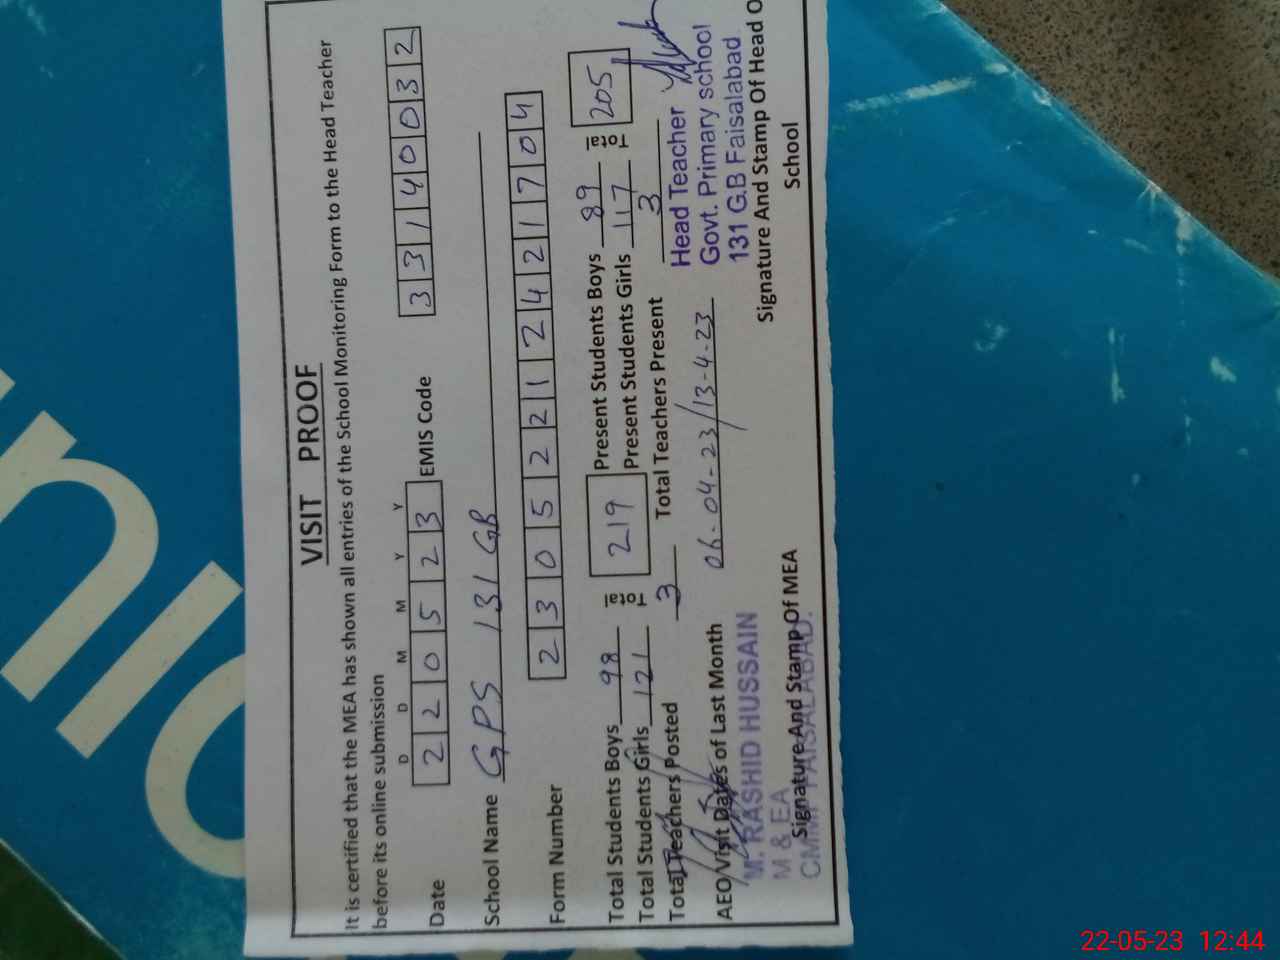 VISIT PROOF
It is certified that the MEA has shown all entries of the School Monitoring Form to the Head Teacher
before its online submission
D D M M Y Y
Date 2 2 0 5 2 3 EMIS Code 3 3 1 4 0 0 3 2
School Name GPS 131 GB
Form Number 2 3 0 5 2 2 1 2 4 2 1 7 0 4
Total Students Boys 98 Total 219 Present Students Boys 89 Total 205
Total Students Girls 121 Present Students Girls 117
Total Teachers Posted 3 Total Teachers Present 3
AEO Visit Dates of Last Month 06-04-23/13-4-23
Head Teacher
Govt. Primary school
131 G.B Faisalabad
M. RASHID HUSSAIN
M & EA
CMMF FAISALABAD.
Signature And Stamp Of MEA
Signature And Stamp Of Head O
School
22-05-23 12:44